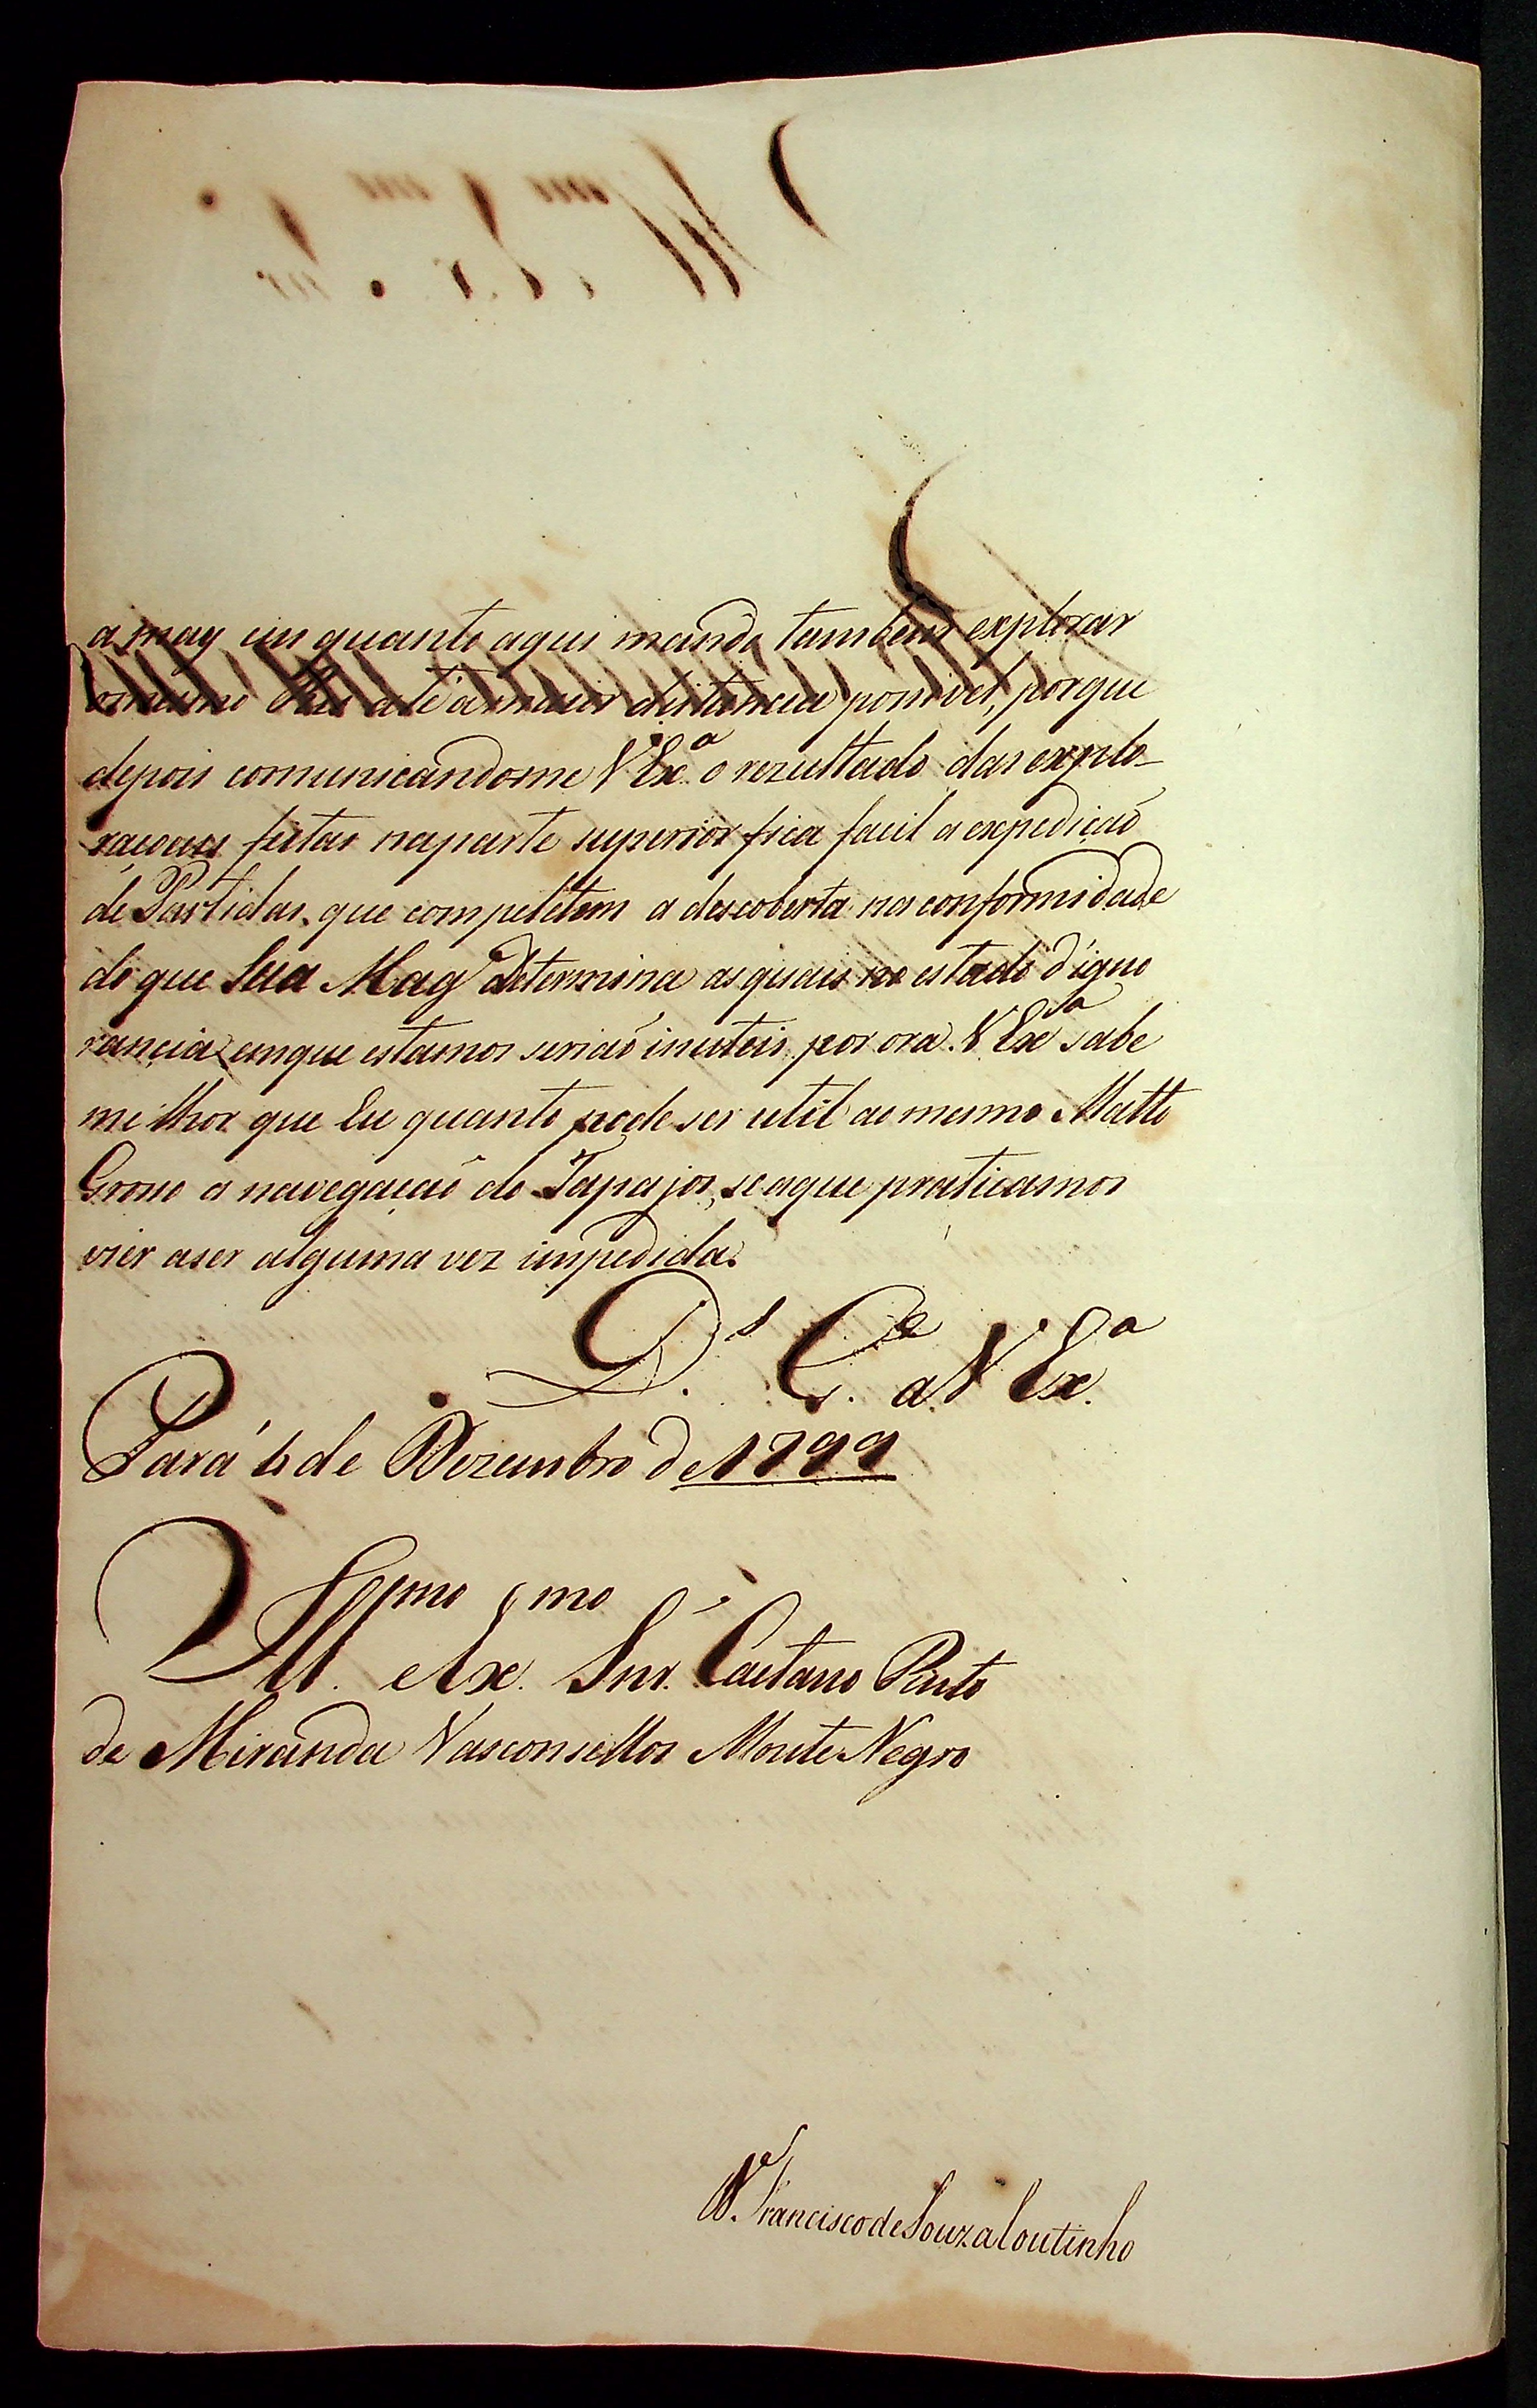 a mag em quanto aqui mando tambem explorar
o mesmo Rio até a maior distancia possivel, porque
depois comunicandome V Ex.ª o rezultado das explo-
raçoens feitas naparte superior fica facil a expedição
de Partidas que compeletem a descoberta na conformidade
do que Sua Mag.e Determina as quais no estado d'igno
rancia emque estamos serião inuteis por ora. V Ex.ª sabe
milhor que Eu quanto pode ser util ao mesmo Matto
Grosso a navegação do Tapajos, se aque praticamos
vier aser alguma vez impedida.
D.s G.e a V Ex.ª
Pará 4 de Dezembro de 1799
Ill.mo e Ex.mo Snr. Caetano Pinto
de Miranda Vasconsellos Monte Negro
D. Francisco de Souza Coutinho